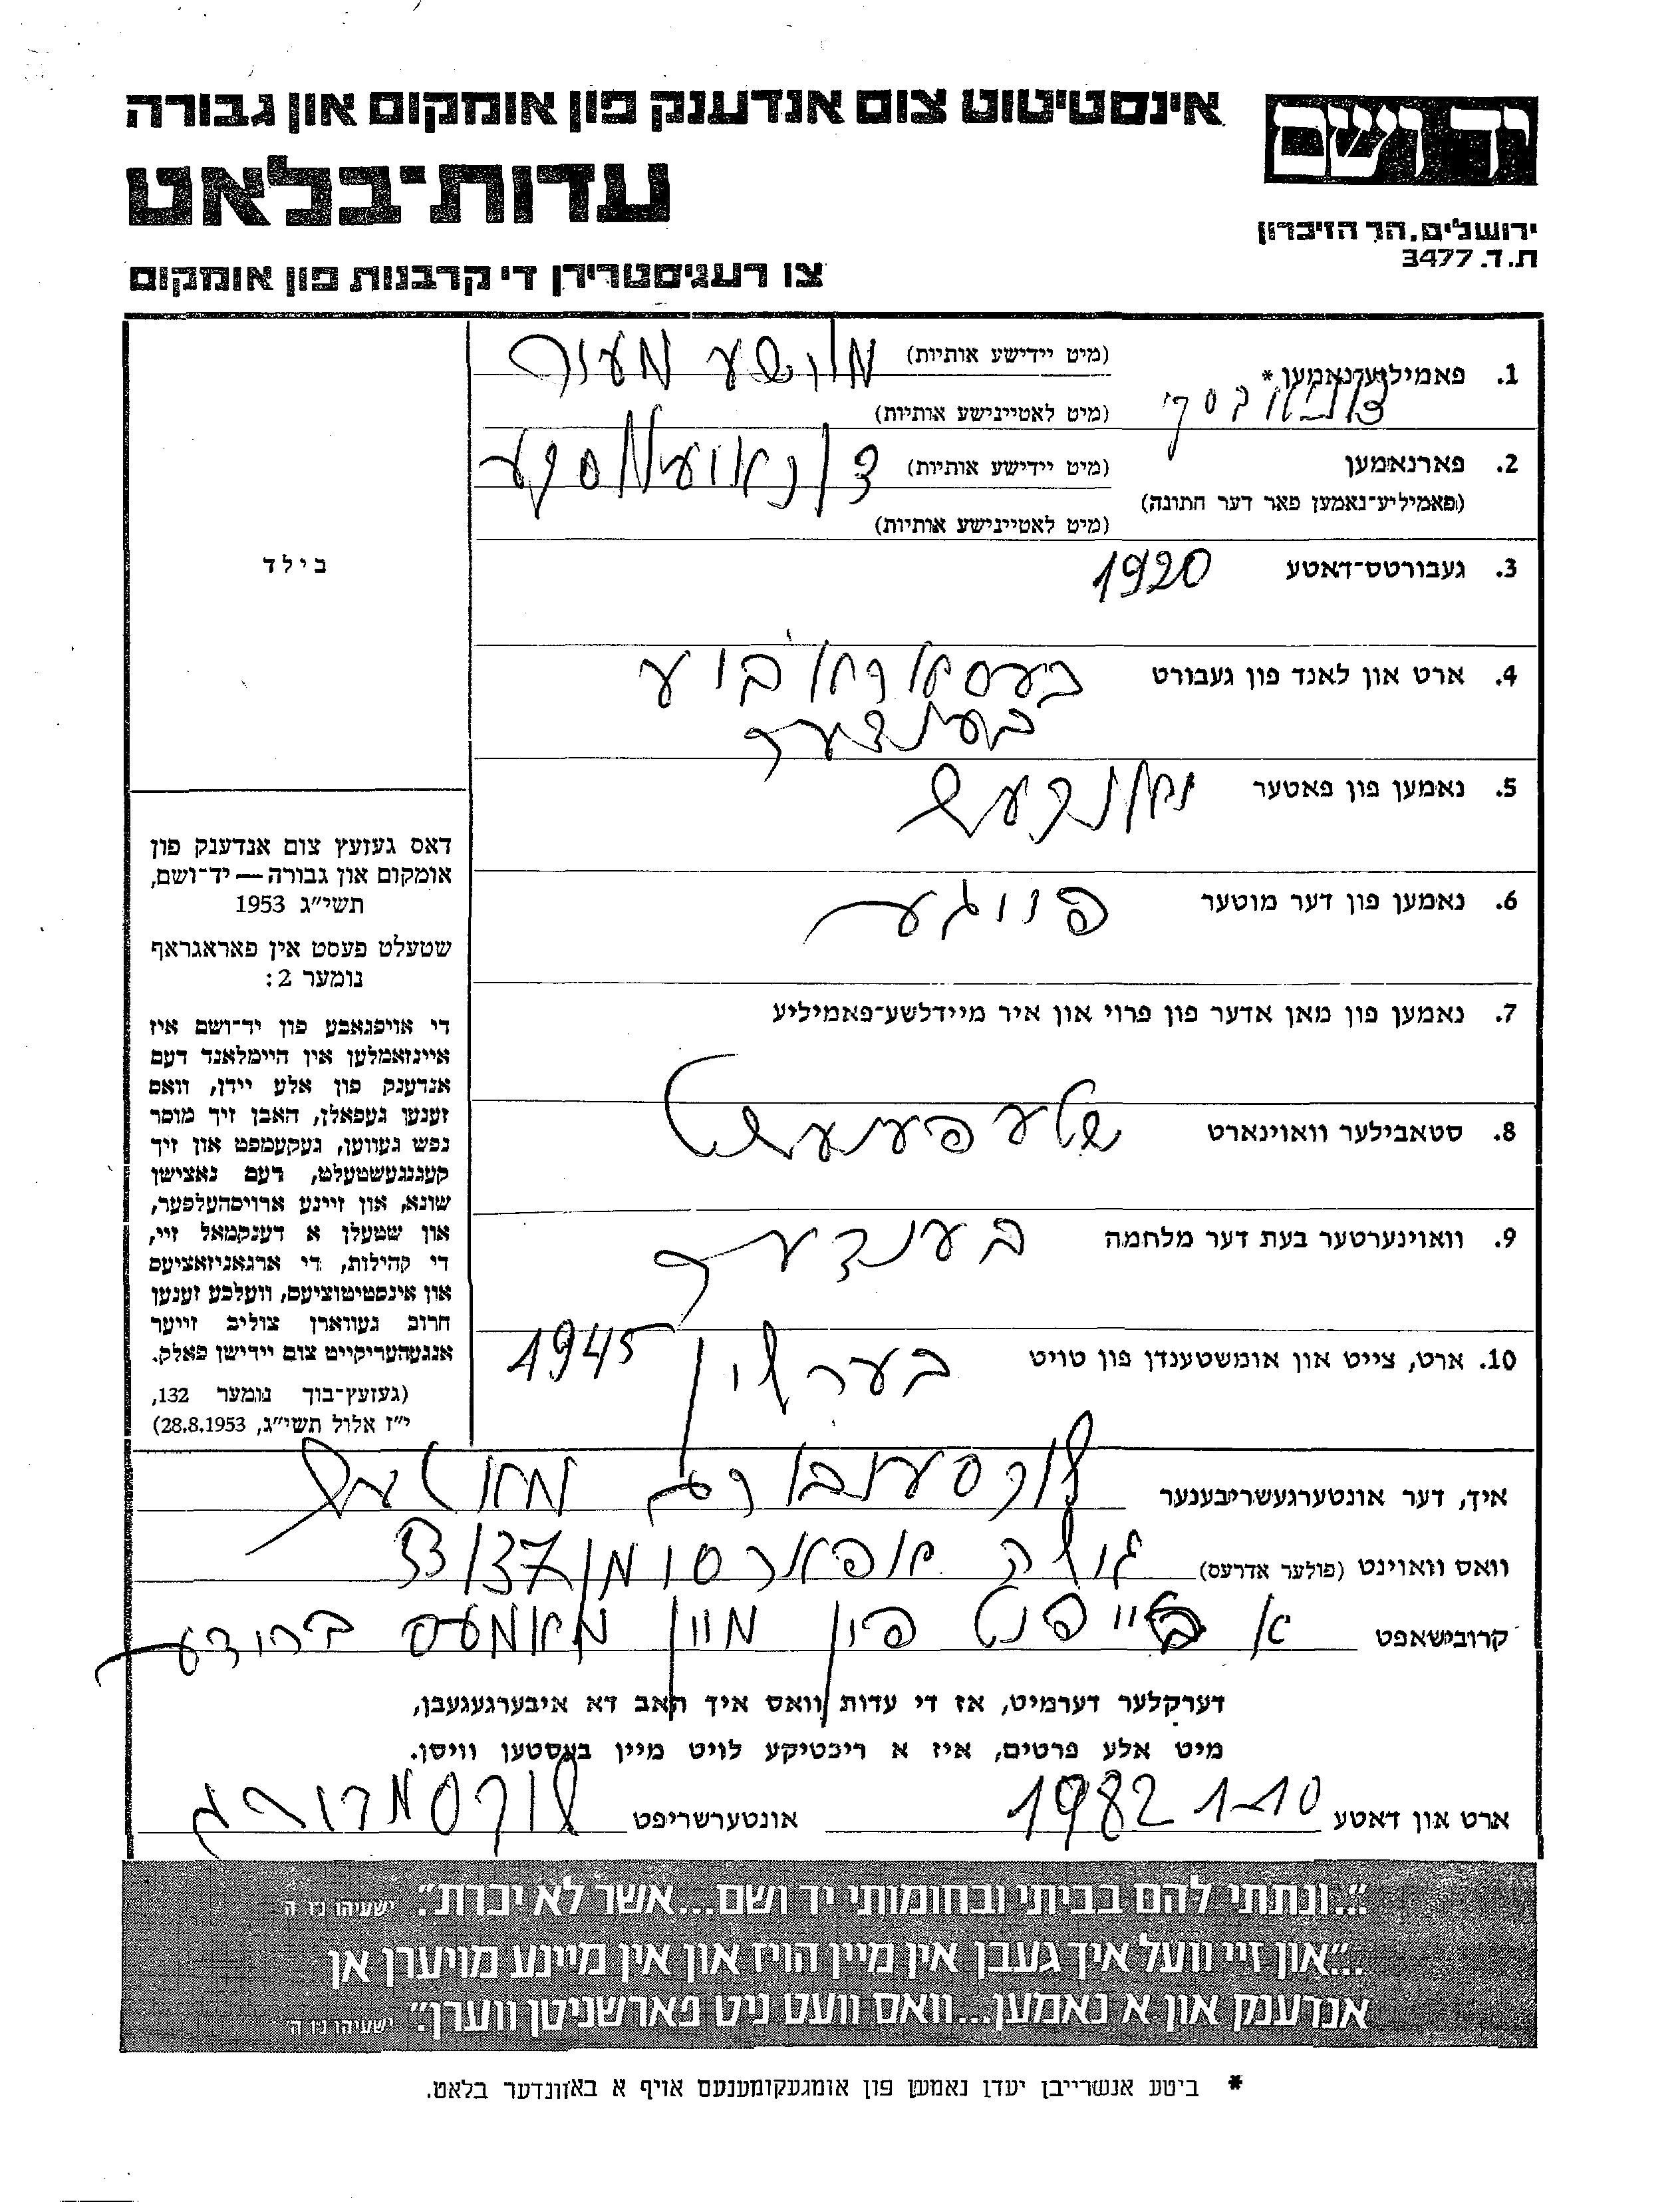 אינסטיטוט צום אנדענק פון אומקום און גבורה
יד ושם
עדות־בלאט
ירושלים, הר הזיכרון
ת.ד. 3477
צו רעגיסטרירן די קרבנות פון אומקום
1. פאמיליע־נאמען* (מיט יידישע אותיות)
(מיט לאטיינישע אותיות)
2. פארנאמען (מיט יידישע אותיות)
(פאמיליע־נאמען פאר דער חתונה)
(מיט לאטיינישע אותיות)
בילד
3. געבורטס־דאטע 1920
4. ארט און לאנד פון געבורט
בענדער
5. נאמען פון פאטער יאנקעל
6. נאמען פון דער מוטער פייגע
7. נאמען פון מאן אדער פון פרוי און איר מיידלשע־פאמיליע
8. סטאבילער וואוינארט
9. וואוינערטער בעת דער מלחמה בענדער
10. ארט, צייט און אומשטענדן פון טויט בערלין 1945
דאס געזעץ צום אנדענק פון
אומקום און גבורה — יד־ושם,
תשי״ג 1953
שטעלט פעסט אין פאראגראף
נומער 2:
די אויפגאבע פון יד־ושם איז
איינזאמלען אין היימלאנד דעם
אנדענק פון אלע יידן, וואס
זענען געפאלן, האבן זיך מוסר
נפש געווען, געקעמפט און זיך
קעגנגעשטעלט, דעם נאצישן
שונא, און זיינע ארויסהעלפער,
און שטעלן א דענקמאל זיי,
די קהילות, די ארגאניזאציעס
און אינסטיטוציעס, וועלכע זענען
חרוב געווארן צוליב זייער
אנגעהעריקייט צום יידישן פאלק.
(געזעץ־בוך נומער 132,
י״ז אלול תשי״ג, 28.8.1953)
איך, דער אונטערגעשריבענער
וואס וואוינט (פולער אדרעס) 33/37
קרובישאפט א פון מיין מאמעס ברודער
דערקלער דערמיט, אז די עדות וואס איך האב דא איבערגעגעבן,
מיט אלע פרטים, איז א ריכטיקע לויט מיין בעסטען וויסן.
ארט און דאטע 1982 1-10 אונטערשריפט
״...ונתתי להם בביתי ובחומותי יד ושם...אשר לא יכרת״. ישעיהו נו ה
...״און זיי וועל איך געבן אין מיין הויז און אין מיינע מויערן אן
אנדענק און א נאמען...וואס וועט ניט פארשניטן ווערן״. ישעיהו נו ה׳
* ביטע אנשרייבן יעדן נאמען פון אומגעקומענעם אויף א באזונדער בלאט.